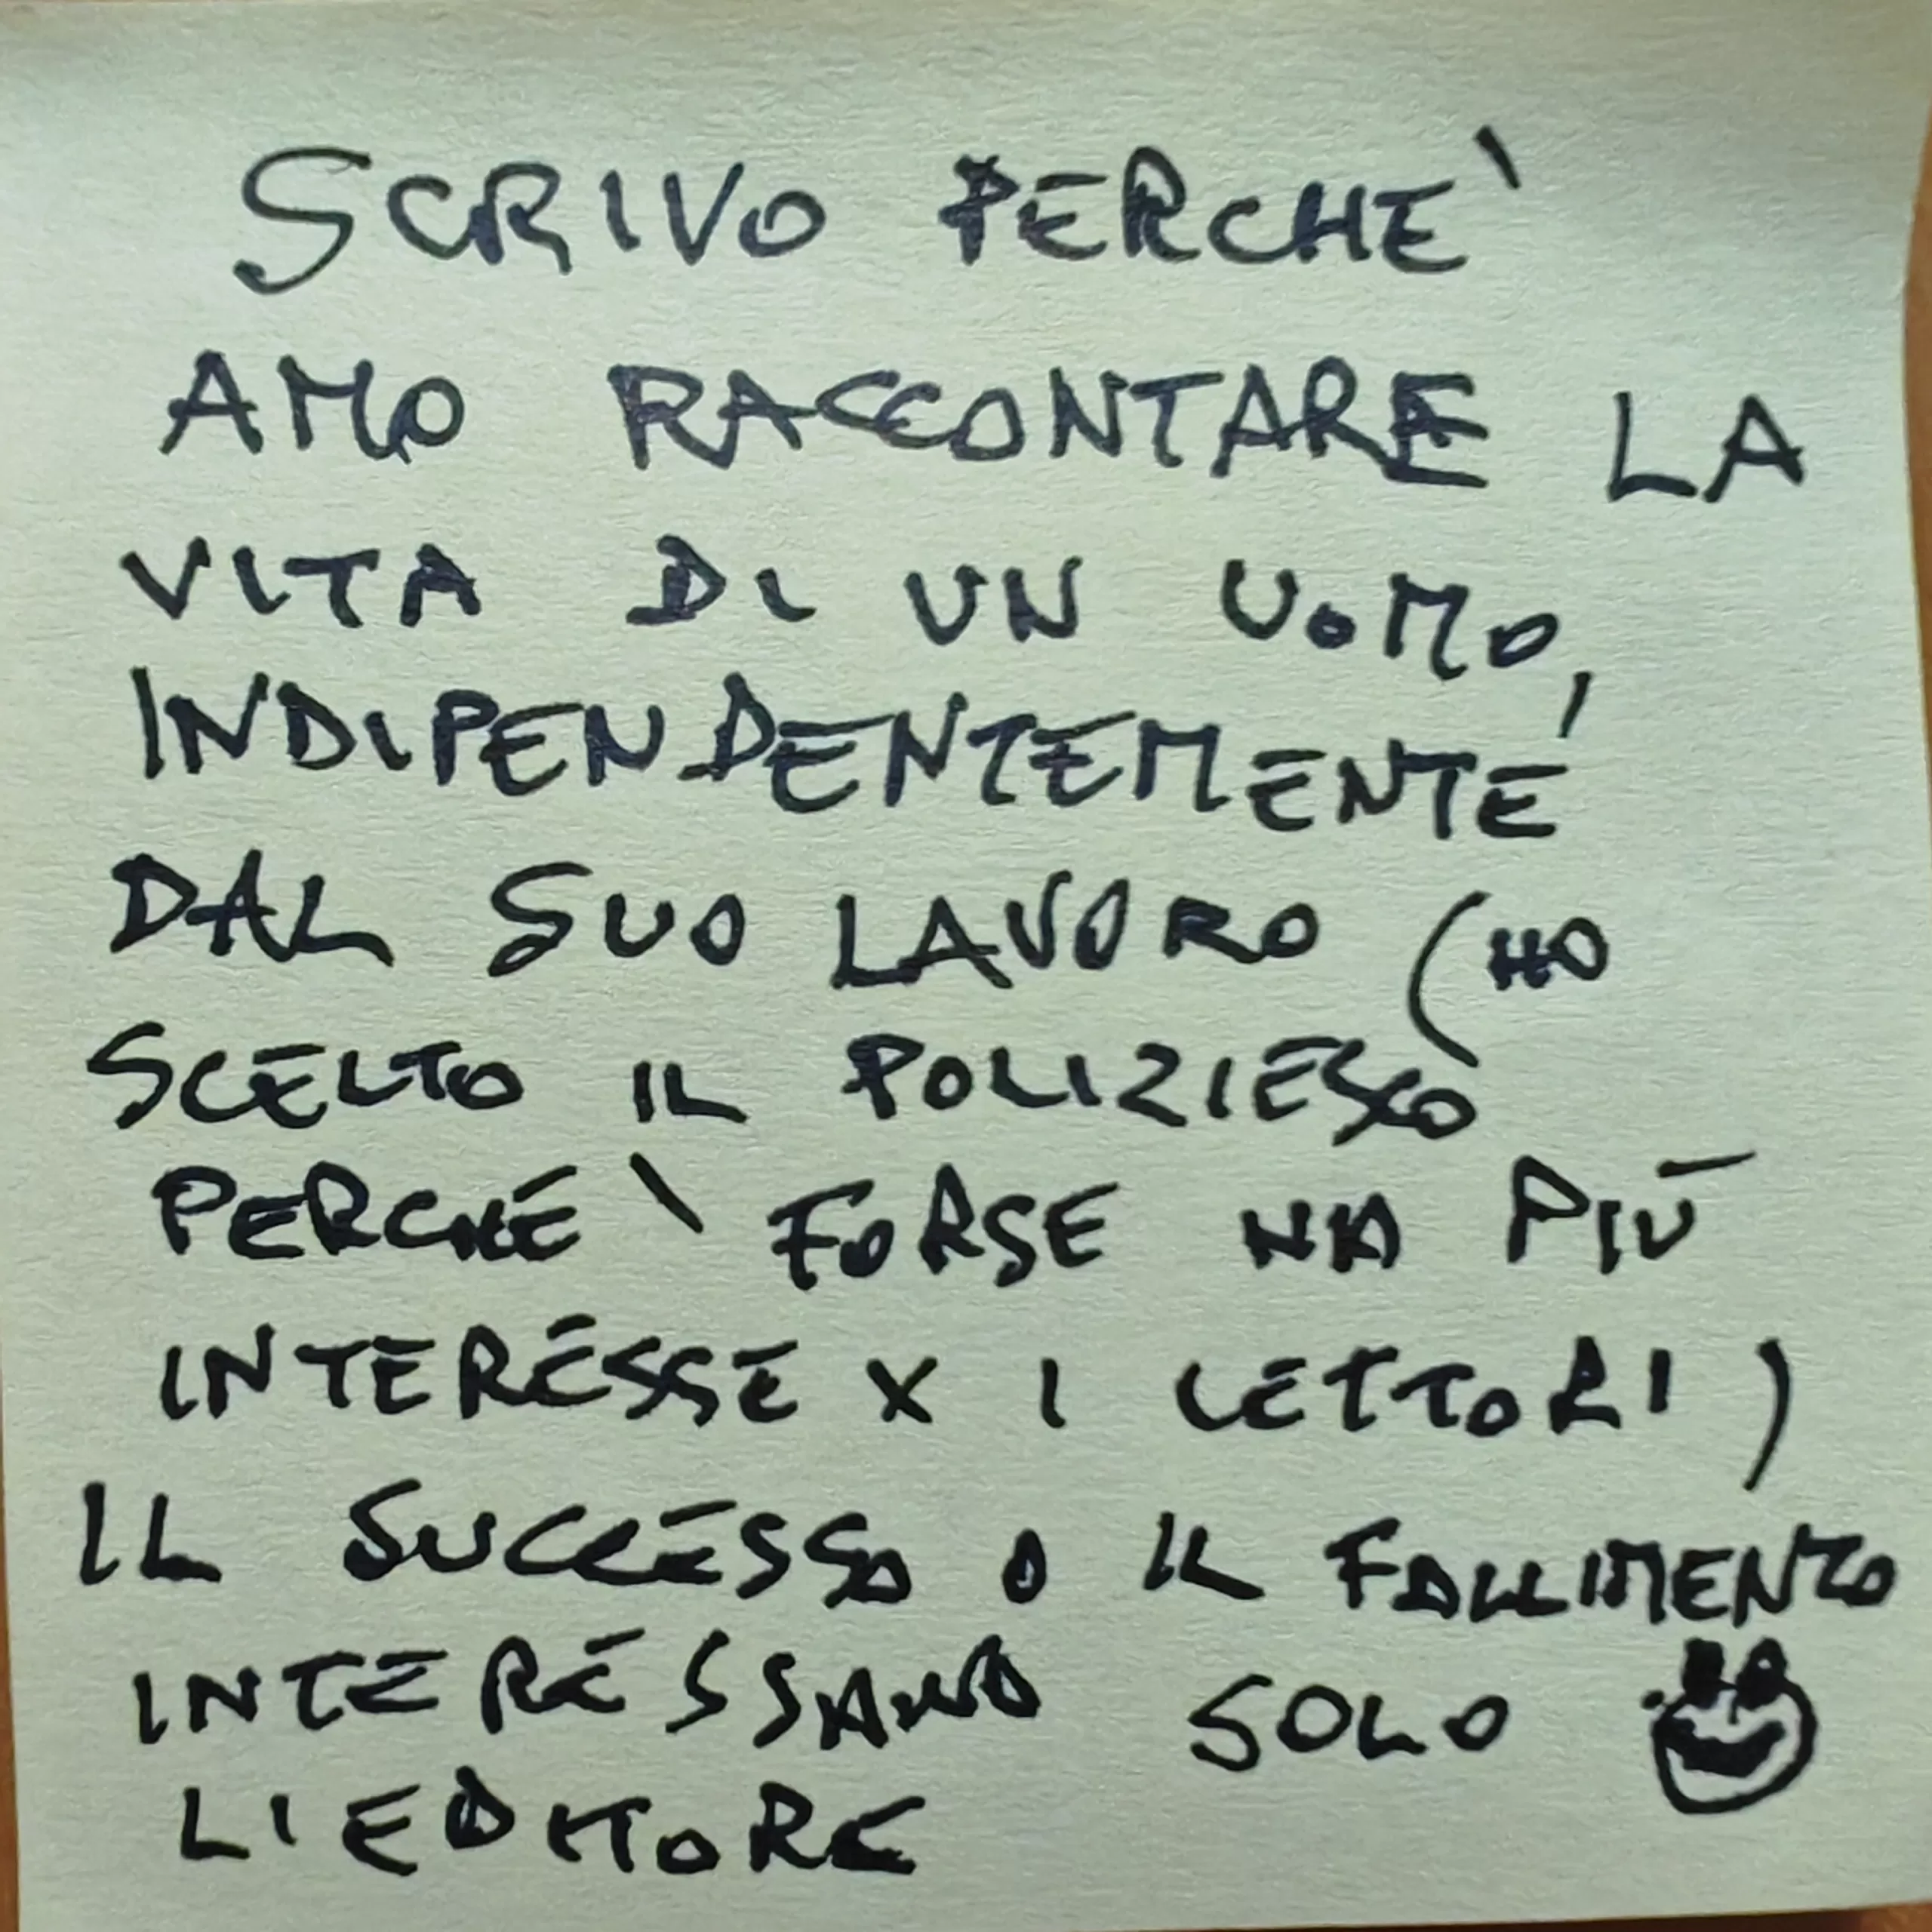 SCRIVO PERCHE`
AMO RACCONTARE LA
VITA DI UN UOMO,
INDIPENDENTEMENTE
DAL SUO LAVORO (HO
SCELTO IL POLIZIESCO
PERCHE` FORSE HA PIÙ
INTERESSE X I LETTORI)
IL SUCCESSO O IL FALLIMENTO
INTERESSANO SOLO
L'EDITORE